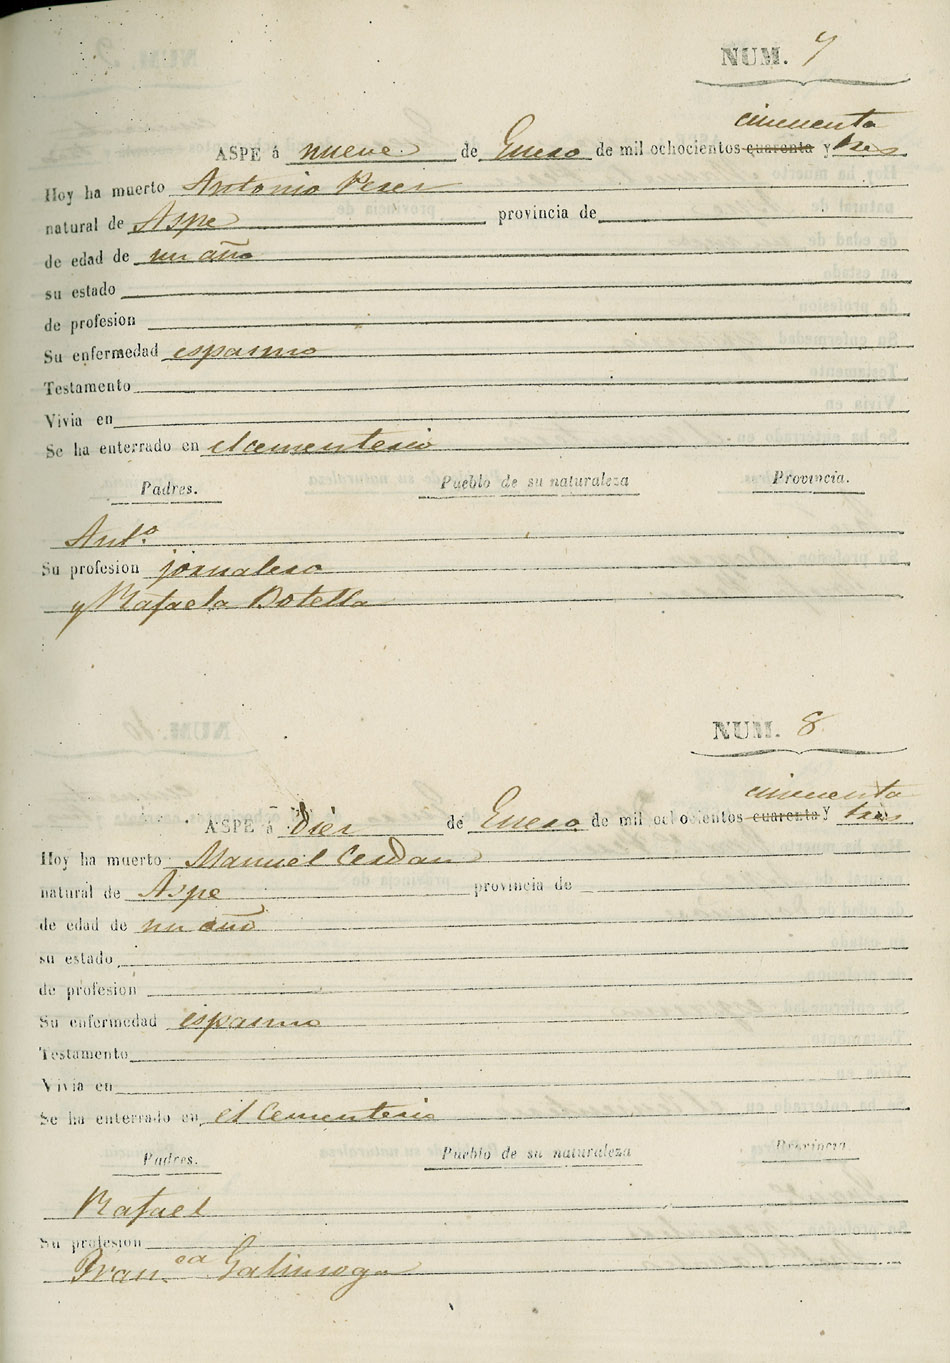 NUM. 7
cincuenta
ASPE á nueve de Enero de mil ochocientos cuarenta y tres
Hoy ha muerto Antonio Perez
natural de Aspe provincia de
de edad de un año
su estado
de profesion
Su enfermedad espasmo
Testamento
Vivia en
Se ha enterrado en el cementerio
Padres. Pueblo de su naturaleza Provincia.
Ant.º
Su profesion jornalero
y Rafaela Botella
NUM. 8
cincuenta
ASPE á diez de Enero de mil ochocientos cuarenta y tres
Hoy ha muerto Manuel Cerdan
natural de Aspe provincia de
de edad de un año
su estado
de profesion
Su enfermedad espasmo
Testamento
Vivia en
Se ha enterrado en el Cementerio
Padres. Pueblo de su naturaleza Provincia.
Rafael
Su profesion
Fran.ca Galinsoga